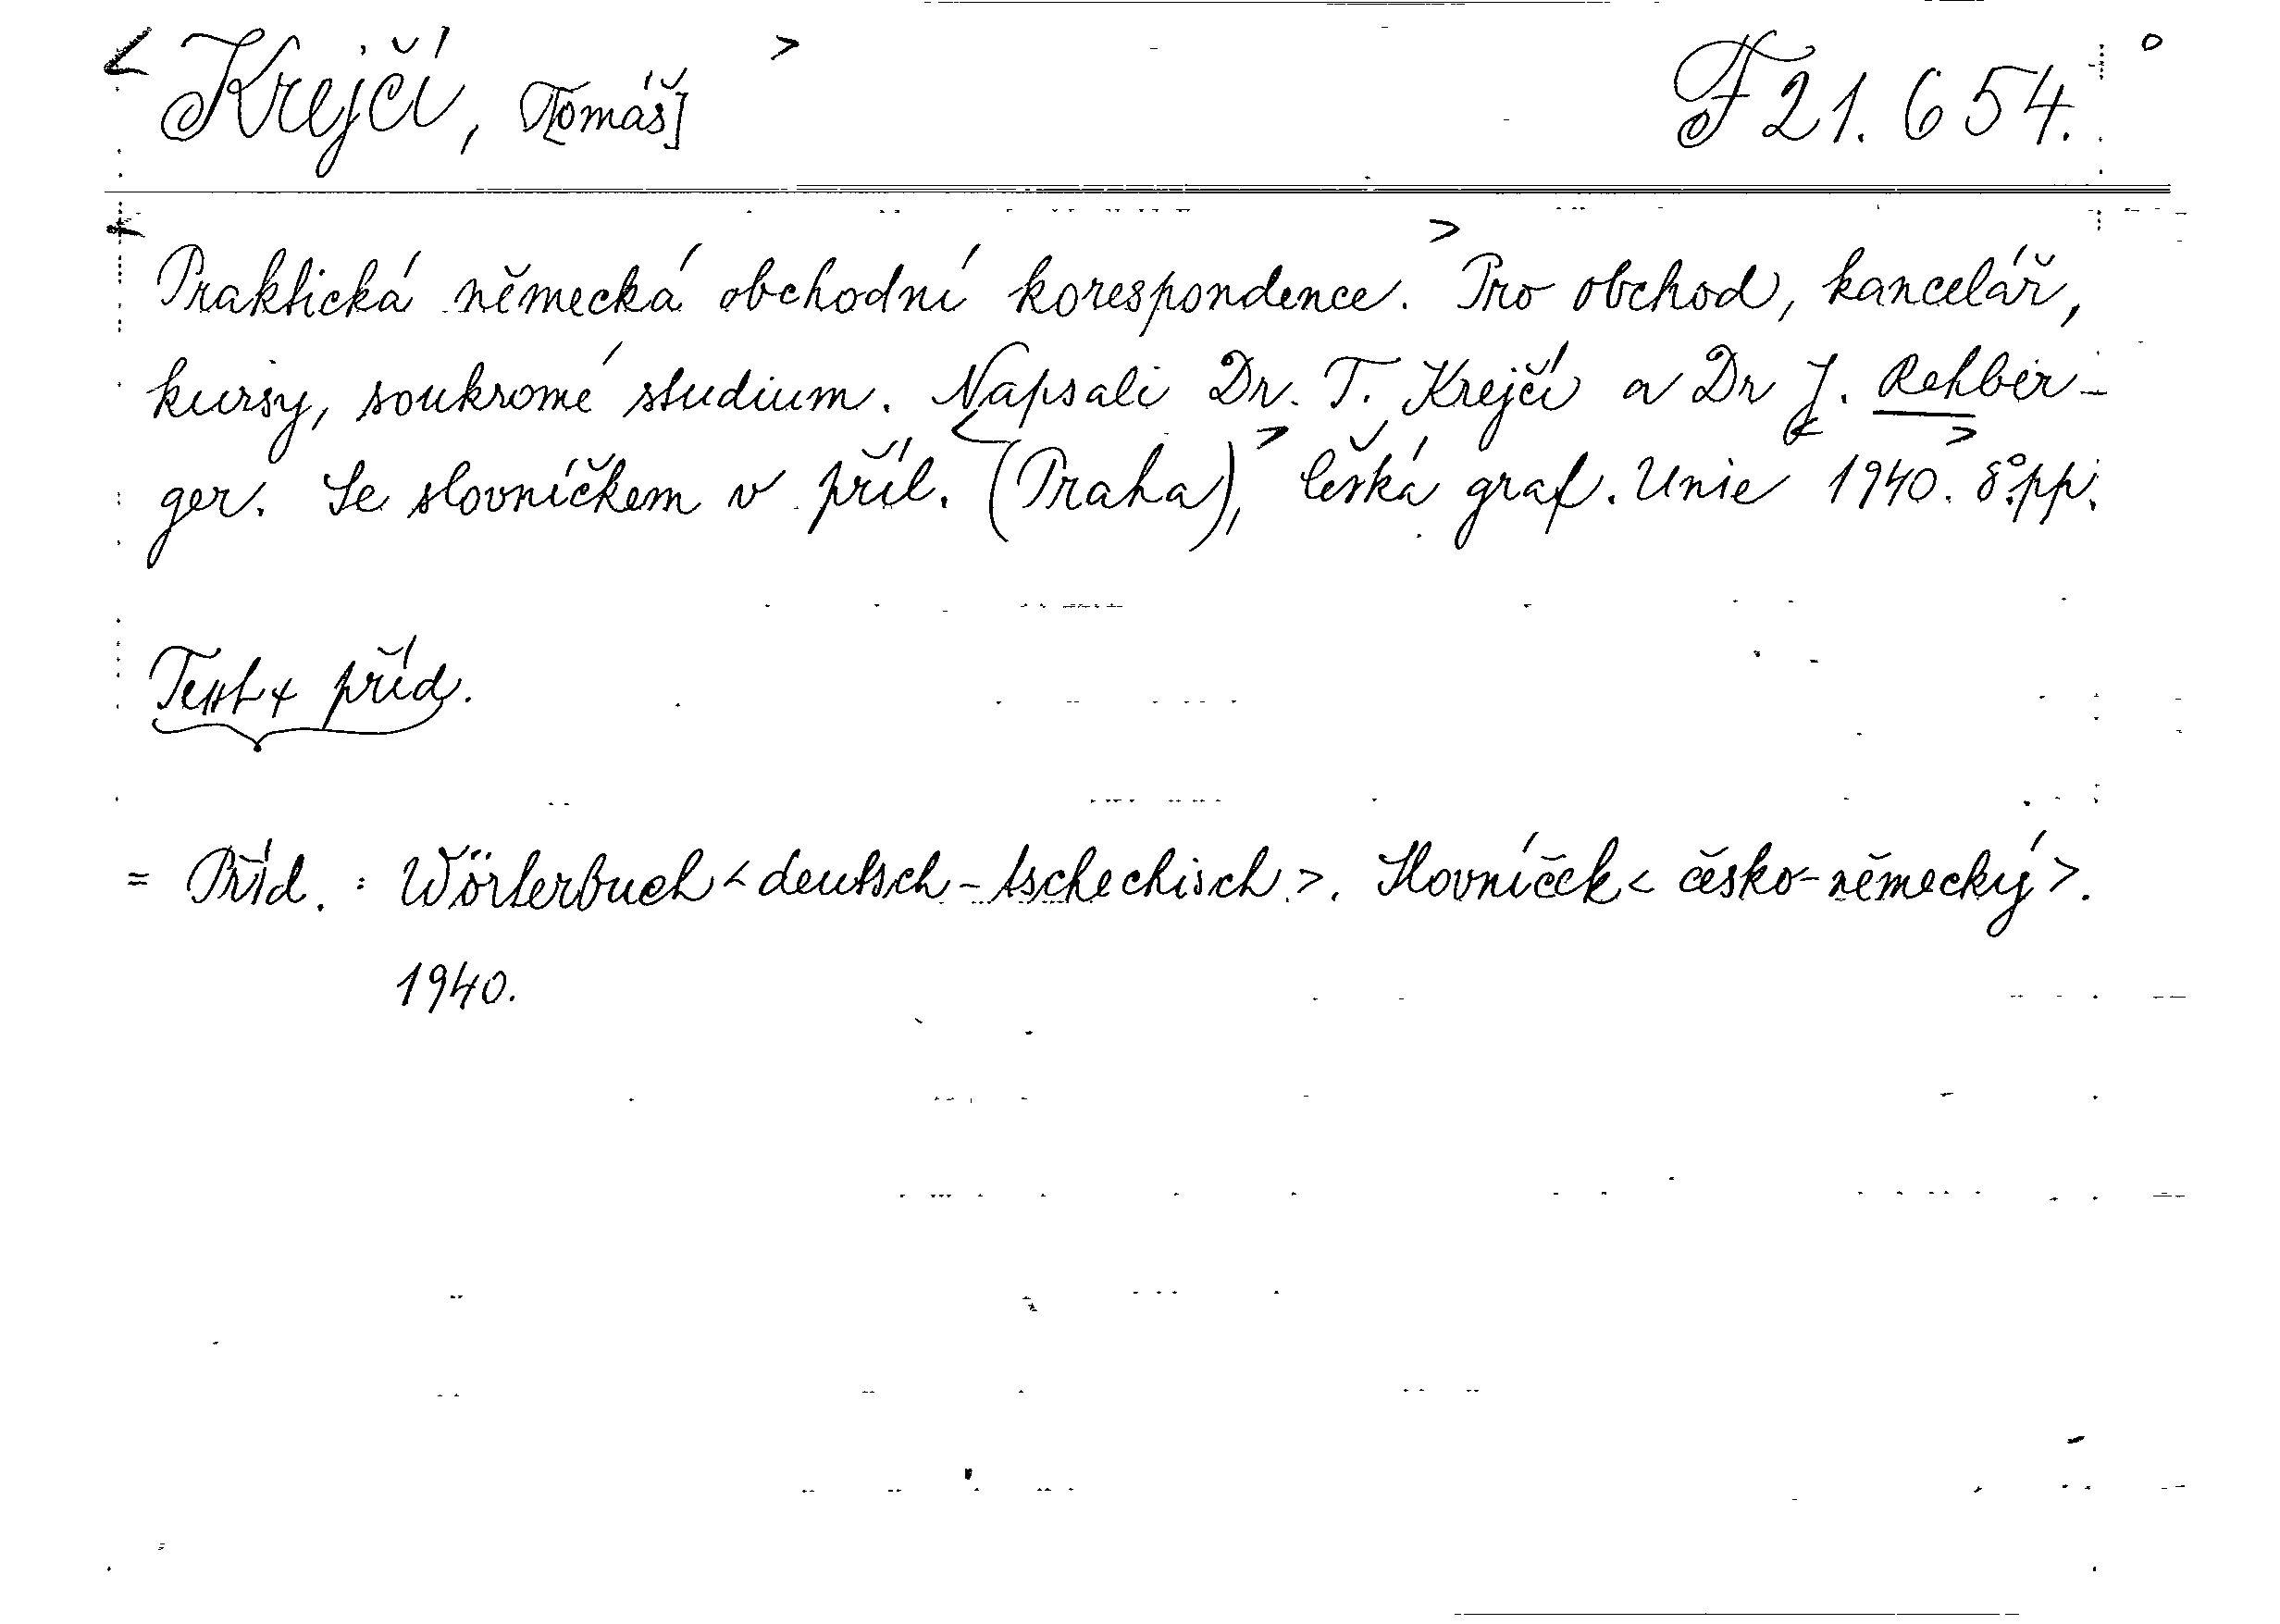 < Krejčí, T[omáš] > F 21.654. °
< Praktická německá obchodní korespondence. > Pro obchod, kancelář,
kursy, soukromé studium. Napsali Dr. T. Krejčí a Dr J. Rehber-
ger. Se slovníčkem v příl. <(Praha),> Česká graf. Unie <1940.> 8° pp.
Text + příd.
= Příd. : Wörterbuch < deutsch-tschechisch >. Slovníček < česko-německý >.
1940.